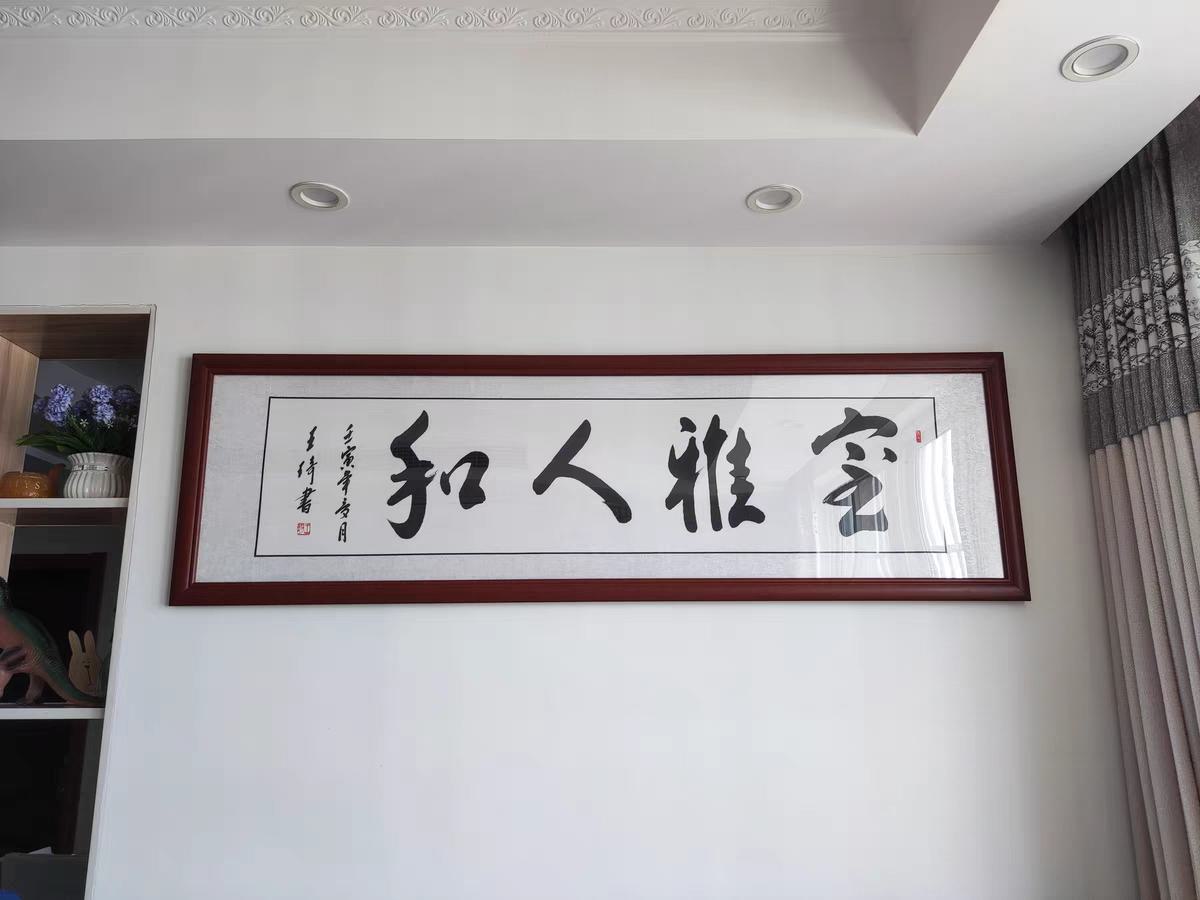 室雅人和
壬寅年夏月
王琦書